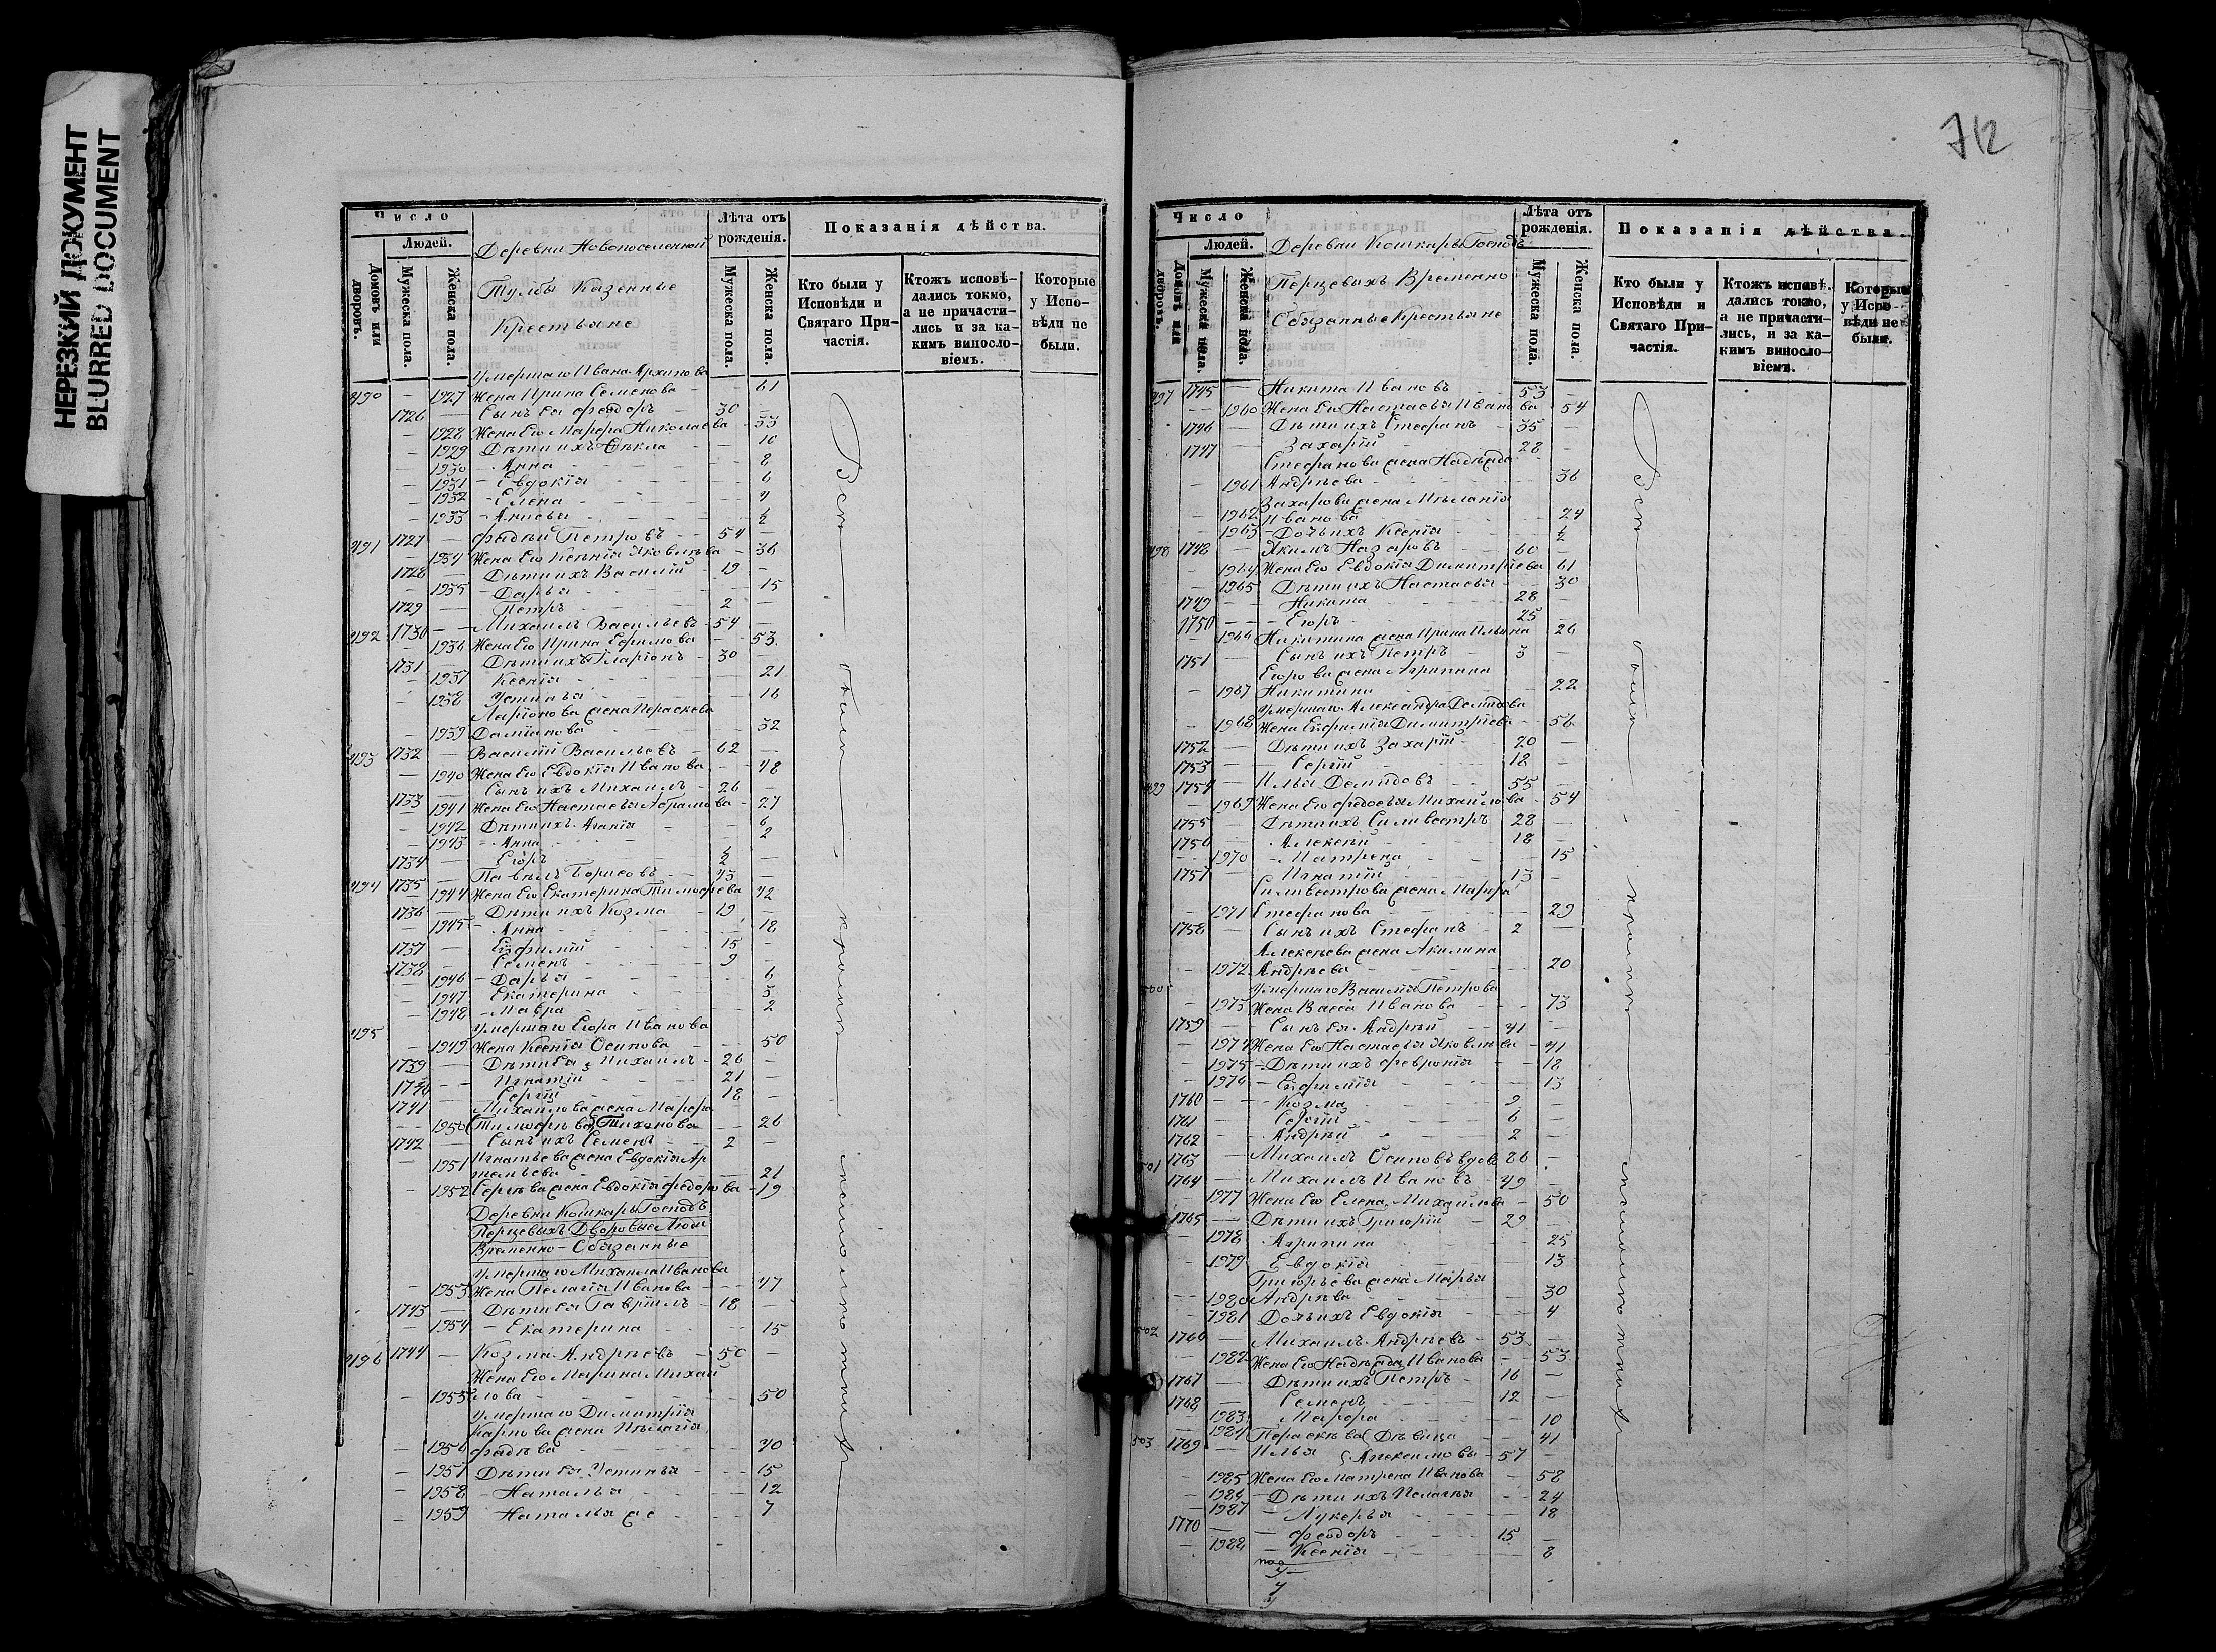 НЕРЕЗКИЙ ДОКУМЕНТ
BLURRED DOCUMENT
712
Число
Людей.
Домовъ или дворовъ.
Мужеска пола.
Женска пола.
Деревни Новопоселенной
Тулбы Казенные
Крестьяне
Лѣта отъ рожденія.
Мужеска пола.
Женска пола.
Показанія дѣйства.
Кто были у Исповѣди и Святаго Причастія.
Ктожъ исповѣдались токмо, а не причастились и за какимъ винословіемъ.
Которые у Исповѣди не были.
Умершаго Ивана Архипова
490 — 1927 Жена Ирина Семенова — 61
1726 — Сынъ Ея Феодоръ 30 —
— 1928 Жена Его Марфа Николаева — 33
— 1929 Дѣти ихъ Ѳекла — 10
— 1930 — Анна — 8
— 1931 — Евдокія — 6
— 1932 — Елена — 4
— 1933 — Анисья — ½
491 1727 — Фадѣй Петровъ 54 —
1934 Жена Его Ксенія Яковлева — 36
1728 — Дѣти ихъ Василій 19 —
— 1935 — Дарья — 15
1729 — Петръ 2 —
492 1730 — Михаилъ Васильевъ 54 —
— 1936 Жена Его Ирина Ефимова — 53
1731 — Дѣти ихъ Иларіонъ 30 —
— 1937 Ксенія — 21
— 1938 Устинья — 16
Ларіонова жена Параскева
— 1939 Даміанова — 32
493 1732 — Василій Васильевъ 62 —
— 1940 Жена Его Евдокія Иванова — 48
1733 — Сынъ ихъ Михаилъ 26 —
— 1941 Жена Его Настасья Абрамова — 27
— 1942 Дѣти ихъ Агапія — 6
— 1943 — Анна — 2
1734 — Егоръ ½ —
494 1735 — Павелъ Борисовъ 43 —
— 1944 Жена Его Екатерина Тимофеева 42
1736 — Дѣти ихъ Козма 19 —
— 1945 — Анна — 18
1737 — Евфимій 15 —
1738 — Семенъ 9 —
— 1946 — Дарья — 6
— 1947 Екатерина — 5
— 1948 — Мавра — 2
495 Умершаго Егора Иванова
— 1949 Жена Ксенія Осипова — 50
1739 — Дѣти Ея Михаилъ 26 —
1740 — Игнатій 21 —
1741 — Сергій 18 —
Михаилова жена Марфа
— 1950 (Тимофѣева) Тихонова — 26
1742 — Сынъ ихъ Семенъ 2 —
— 1951 Игнатьева жена Евдокія Артемьева — 21
— 1952 Сергѣева жена Евдокія Федорова — 19
Деревни Кошкары Господъ
Перцевыхъ Дворовые Люди
Временно-Обязанные
Умершаго Михаила Иванова
— 1953 Жена Пелагія Иванова — 47
1743 — Дѣти Ея Гавріилъ 18 —
— 1954 — Екатерина — 15
496 1744 — Козма Андреевъ 50 —
Жена Его Марина Михай
— 1955 лова — 50
Умершаго Димитрія
Карпова жена Пелагія
— 1956 Фадѣева — 40
— 1957 Дѣти Ея Устинья — 15
— 1958 — Наталья — 12
— 1959 — Наталья же — 7
Всѣ были кромѣ
Число
Людей.
Домовъ или дворовъ.
Мужеска пола.
Женска пола.
Деревни Кошкары Господъ
Перцевыхъ Временно
Обязанные Крестьяне
Лѣта отъ рожденія.
Мужеска пола.
Женска пола.
Показанія дѣйства.
Кто были у Исповѣди и Святаго Причастія.
Ктожъ исповѣдались токмо, а не причастились, и за какимъ винословіемъ.
Которые у Исповѣди не были.
497 1745 — Никита Ивановъ 53 —
— 1960 Жена Его Настасья Иванова 54
1746 — Дѣти ихъ Стефанъ 35 —
1747 — Захарій 28 —
Стефанова жена Надежда
— 1961 Андрѣева — 36
Захарова жена Меланія
— 1962 Иванова — 24
— 1963 — Дочь ихъ Ксенія — ½
498 1748 — Якимъ Назаровъ 60 —
— 1964 Жена Его Евдокія Димитріева 61
— 1965 Дѣти ихъ Настасья — 30
1749 — Никита 28 —
1750 — Егоръ 25 —
1966 Никитина жена Ирина Ильина 26
1751 — Сынъ ихъ Петръ 3 —
Егорова жена Агрипина
— 1967 Никитина — 22
Умершаго Александра Демидова
— 1968 Жена Евфимія Димитріева — 56
1752 — Дѣти ихъ Захарій 20 —
1753 — Сергій 18 —
499 1754 — Илья Демидовъ 55 —
— 1969 Жена Его Федосья Михайлова — 54
1755 — Дѣти ихъ Силивестръ 28 —
1756 — Алексѣй 18 —
— 1970 — Матрена — 15
1757 — Игнатій 13 —
Силивестрова жена Марфа
— 1971 Стефанова — 29
1758 — Сынъ ихъ Стефанъ 2 —
Алексѣева жена Акилина
— 1972 Андрѣева — 20
500 Умершаго Василія Петрова
— 1973 Жена Васса Иванова — 73
1759 — Сынъ Ея Андрѣй 41 —
— 1974 Жена Его Настасья Яковлева — 41
— 1975 — Дѣти ихъ Февронія — 18
— 1976 — Евфимія — 13
1760 — Козма 9 —
1761 — Сергій 6 —
1762 — Андрѣй 2 —
501 1763 — Михаилъ Осиповъ вдовъ 86 —
1764 — Михаилъ Ивановъ 49 —
— 1977 Жена Его Елена Михайлова — 50
1765 — Дѣти ихъ Григорій 29 —
— 1978 Агрипина — 25
— 1979 Евдокія — 13
Григорьева жена Марья
— 1980 Андрѣева — 30
— 1981 Дочь ихъ Евдокія — 4
502 1766 — Михаилъ Андрѣевъ 53 —
— 1982 Жена Его Надежда Иванова — 53
1767 — Дѣти ихъ Петръ 16 —
1768 — Семенъ 12 —
— 1983 Марфа — 10
— 1984 Параскева (Дѣвица — 41
503 1769 — Илья Анексимовы 57 —
1985 Жена Его Матрена Иванова — 58
— 1986 — Дѣти ихъ Пелагья — 24
— 1987 — Лукерья — 18
1770 — Феодоръ 15 —
— 1988 — Ксенія — 8
Всѣ были кромѣ